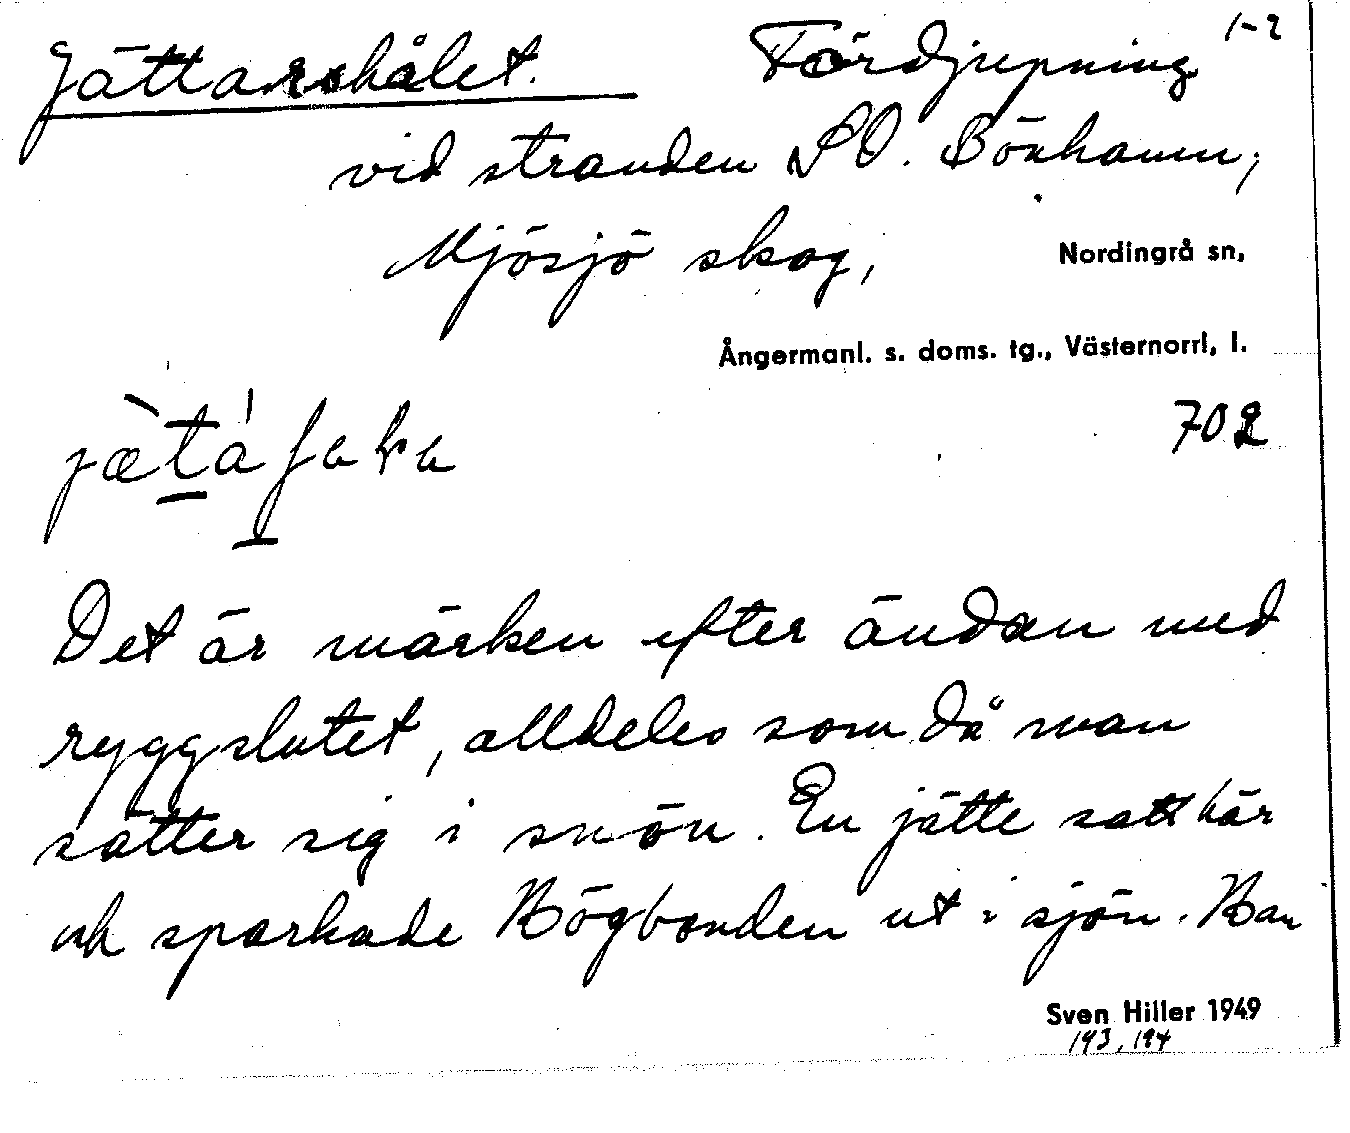 1-2
Jättarshålet. Fördjupning
vid stranden SO. Bönhamn,
Mjösjö skog, Nordingrå sn,
Ångermanl. s. doms. tg., Västernorrl, l.
702
Det är märken efter ändan med
ryggslutet, alldeles som då man
sätter sig i snön. En jätte satt här
och sparkade Högbonden ut i sjön. Han
Sven Hiller 1949
193, 194